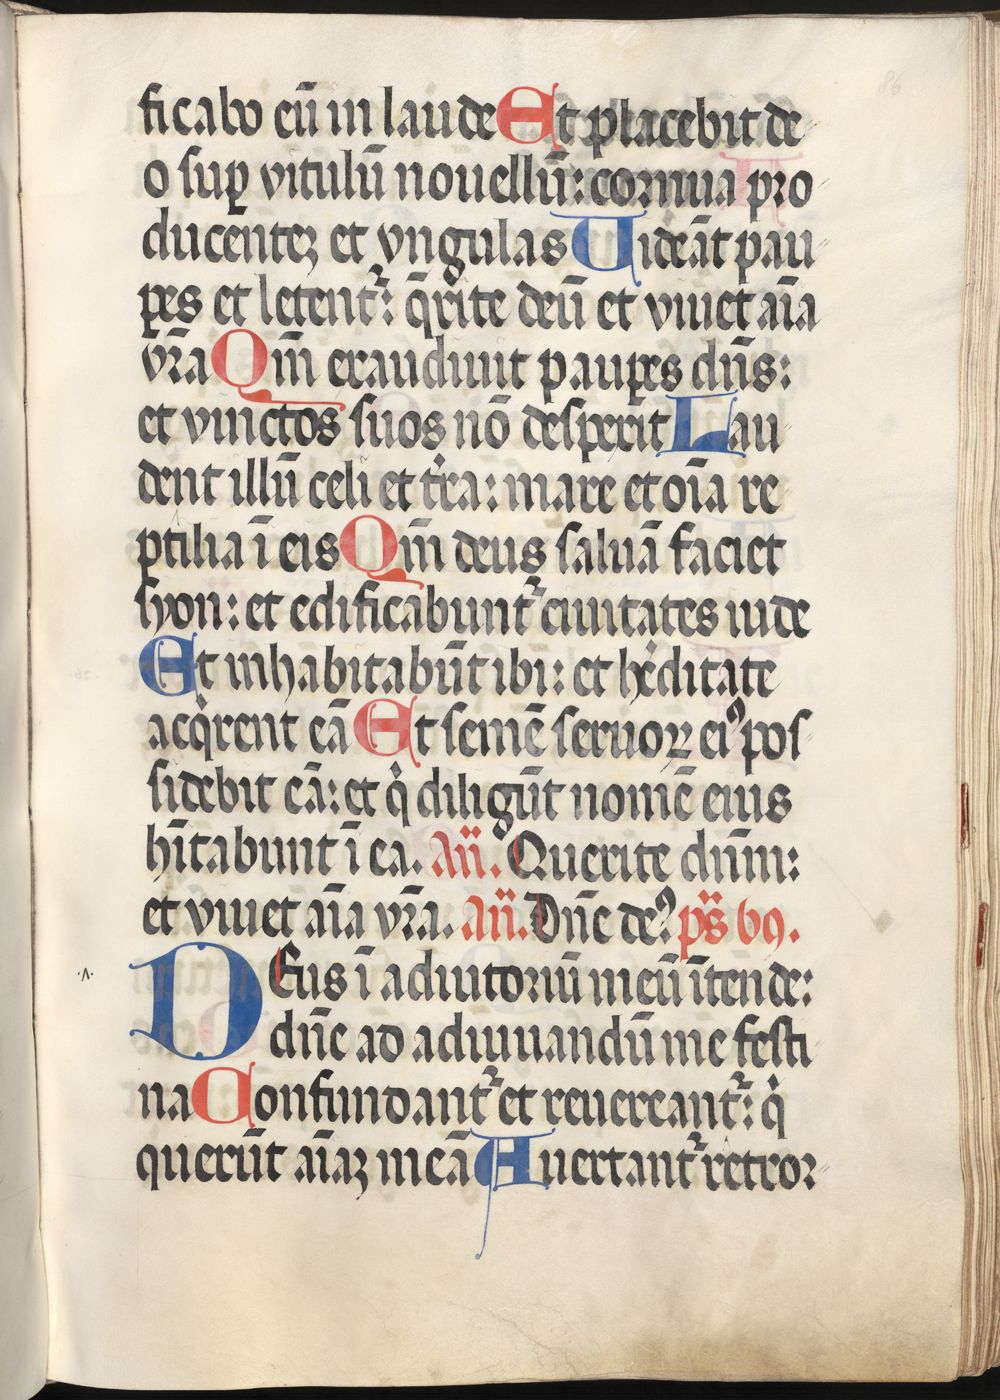 86
ficabo eū in laude Et placebit de
o suꝑ vitulū nouellū: cornua pro
ducenteꝫ et vngulas Uideāt pau
ꝑes et letentᷣ: q̄rite deū et viuet aīa
vr̄a Qm̄ exaudiuit pauꝑes dn̄s:
et vinctos suos nō desperit Lau
dent illū celi et tr̄ra: mare et oīa re
ptilia ī eis Qm̄ deus saluā faciet
syon: et edificabuntᷣ ciuitates iude
Et inhabitabūt ibi: et he͛ditate
acqͥrent eā Et semē seruoꝝ eiꝰ pos
sidebit eā: et qͥ diligūt nomē eius
hītabunt ī ea. An̄. Querite dn̄m:
et viuet aīa vr̄a. An̄. Dn̄e deꝰ ps̄ 69.
.v. DEus ī adiutoriū meū ītende:
dn̄e ad adiuuandū me festi
na Confundantᷣ et reuereantᷣ: qͥ
querūt aīaꝫ meā Auertantᷣ retror